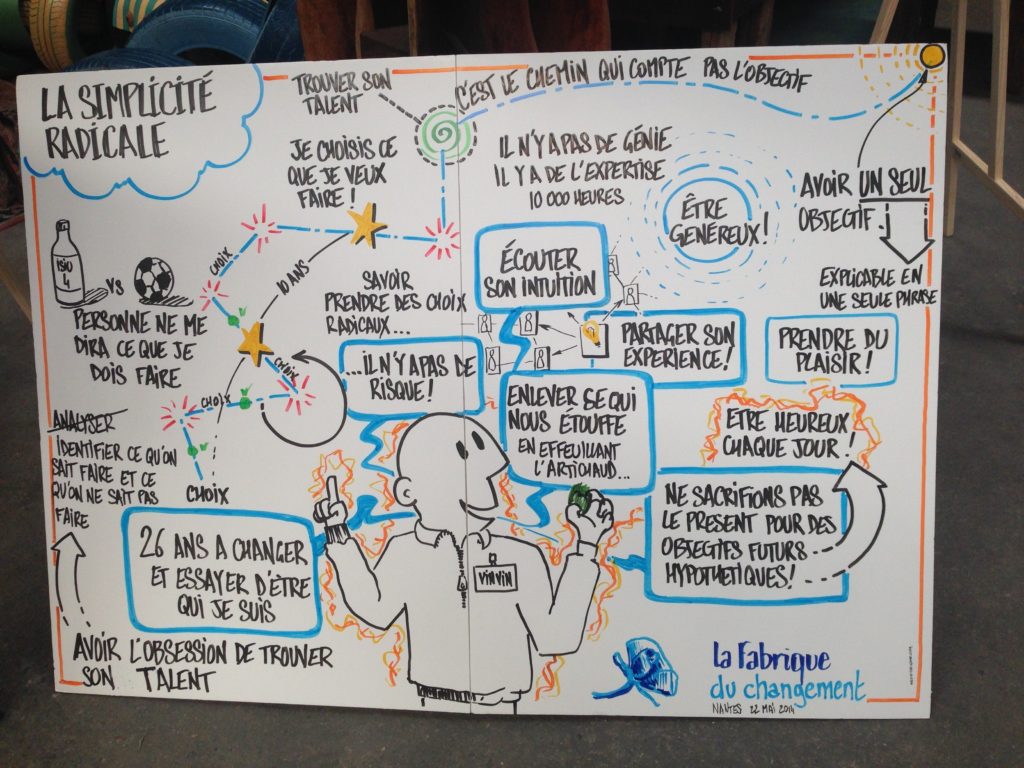 LA SIMPLICITÉ
RADICALE
TROUVER SON
TALENT
C'EST LE CHEMIN QUI COMPTE PAS L'OBJECTIF
JE CHOISIS CE
QUE JE VEUX
FAIRE !
IL N'Y A PAS DE GÉNIE
IL Y A DE L'EXPERTISE
10 000 HEURES
ÊTRE
GÉNÉREUX !
AVOIR UN SEUL
OBJECTIF.
EXPLICABLE EN
UNE SEULE PHRASE
VS
PERSONNE NE ME
DIRA CE QUE JE
DOIS FAIRE
CHOIX
10 ANS
CHOIX
CHOIX
CHOIX
SAVOIR
PRENDRE DES CHOIX
RADICAUX...
...IL N'Y A PAS DE
RISQUE !
ÉCOUTER
SON INTUITION
PARTAGER SON
EXPERIENCE !
PRENDRE DU
PLAISIR !
ENLEVER CE QUI
NOUS ÉTOUFFE
EN EFFEUILLANT
L'ARTICHAUD...
ETRE HEUREUX
CHAQUE JOUR !
NE SACRIFIONS PAS
LE PRESENT POUR DES
OBJECTIFS FUTURS
HYPOTHETIQUES !
ANALYSER
IDENTIFIER CE QU'ON
SAIT FAIRE ET CE
QU'ON NE SAIT PAS
FAIRE
26 ANS A CHANGER
ET ESSAYER D'ÊTRE
QUI JE SUIS
AVOIR L'OBSESSION DE TROUVER
SON TALENT
VINVIN
la Fabrique
du changement
NANTES 22 MAI 2014